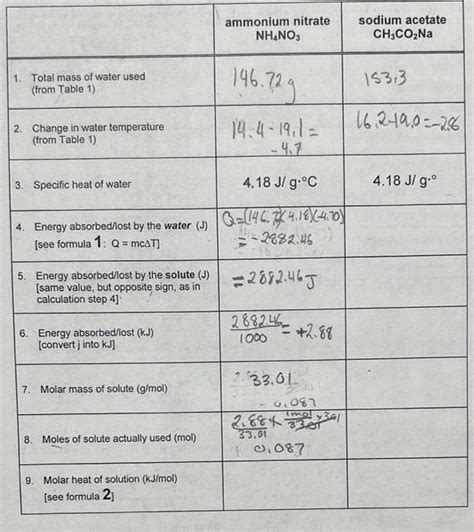 ammonium nitrate
NH₄NO₃
sodium acetate
CH₃CO₂Na
1. Total mass of water used
(from Table 1)
146.72g
153,3
2. Change in water temperature
(from Table 1)
14.4-19,1=
-4.7
16.2-19.0=-2.8
3. Specific heat of water
4.18 J/ g·°C
4.18 J/ g·°
4. Energy absorbed/lost by the water (J)
[see formula 1: Q = mcΔT]
Q=(146.7)(4.18)(-4.70)
=-2882.46
5. Energy absorbed/lost by the solute (J)
[same value, but opposite sign, as in
calculation step 4]
=2882.46J
6. Energy absorbed/lost (kJ)
[convert j into kJ]
2882.46
1000
=+2.88
7. Molar mass of solute (g/mol)
33.01
0.087
8. Moles of solute actually used (mol)
2.88 x
33.01
1mol
0.087
9. Molar heat of solution (kJ/mol)
[see formula 2]